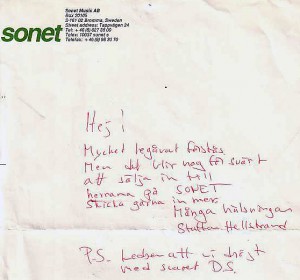 sonet
Sonet Music AB
Box 20105
S-161 02 Bromma, Sweden
Street address: Tappvägen 24
Tel: + 46 (8) 627 28 00
Telex: 10037 sonet s
Telefax: + 46 (8) 98 20 10
Hej!
Mycket legåvat förstås
Men det blir nog för svårt
att sälja in till
herrarna på SONET
Skicka gärna in mer
Många hälsningar
Staffan Hellstrand
P.S. Ledsen att vi dröjt
med svaret D.S.